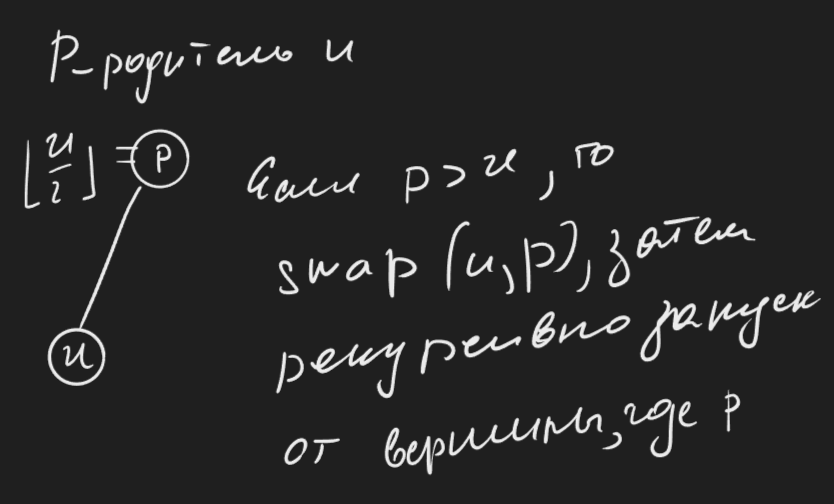 P-родитель u
⌊u/2⌋ = P
Если p > u, то
swap (u, p), затем
рекурсивно запуск
от вершины, где p
u